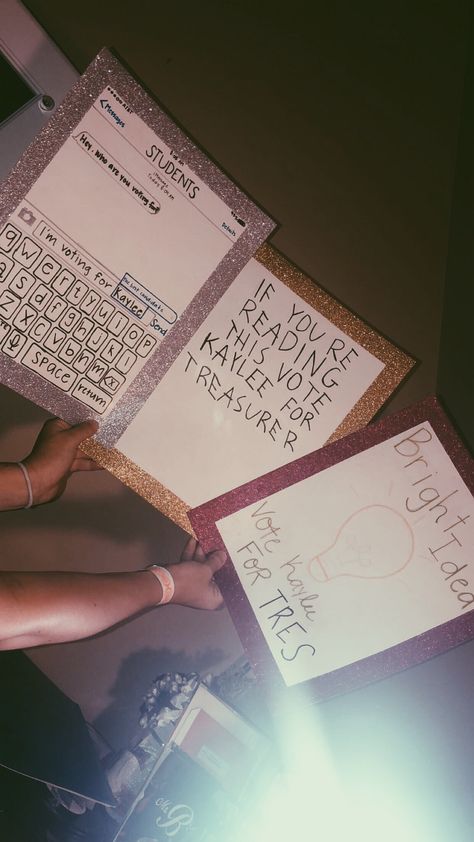 Messages
STUDENTS
Details
iMessage
Hey, who are you voting for
I'm voting for
Kaylee
Send
q w e r t y u i o p
a s d f g h j k l
z x c v b n m
space return
IF YOU'RE
READING
THIS VOTE
KAYLEE FOR
TREASURER
Bright Idea
Vote Kaylee
FOR TRES